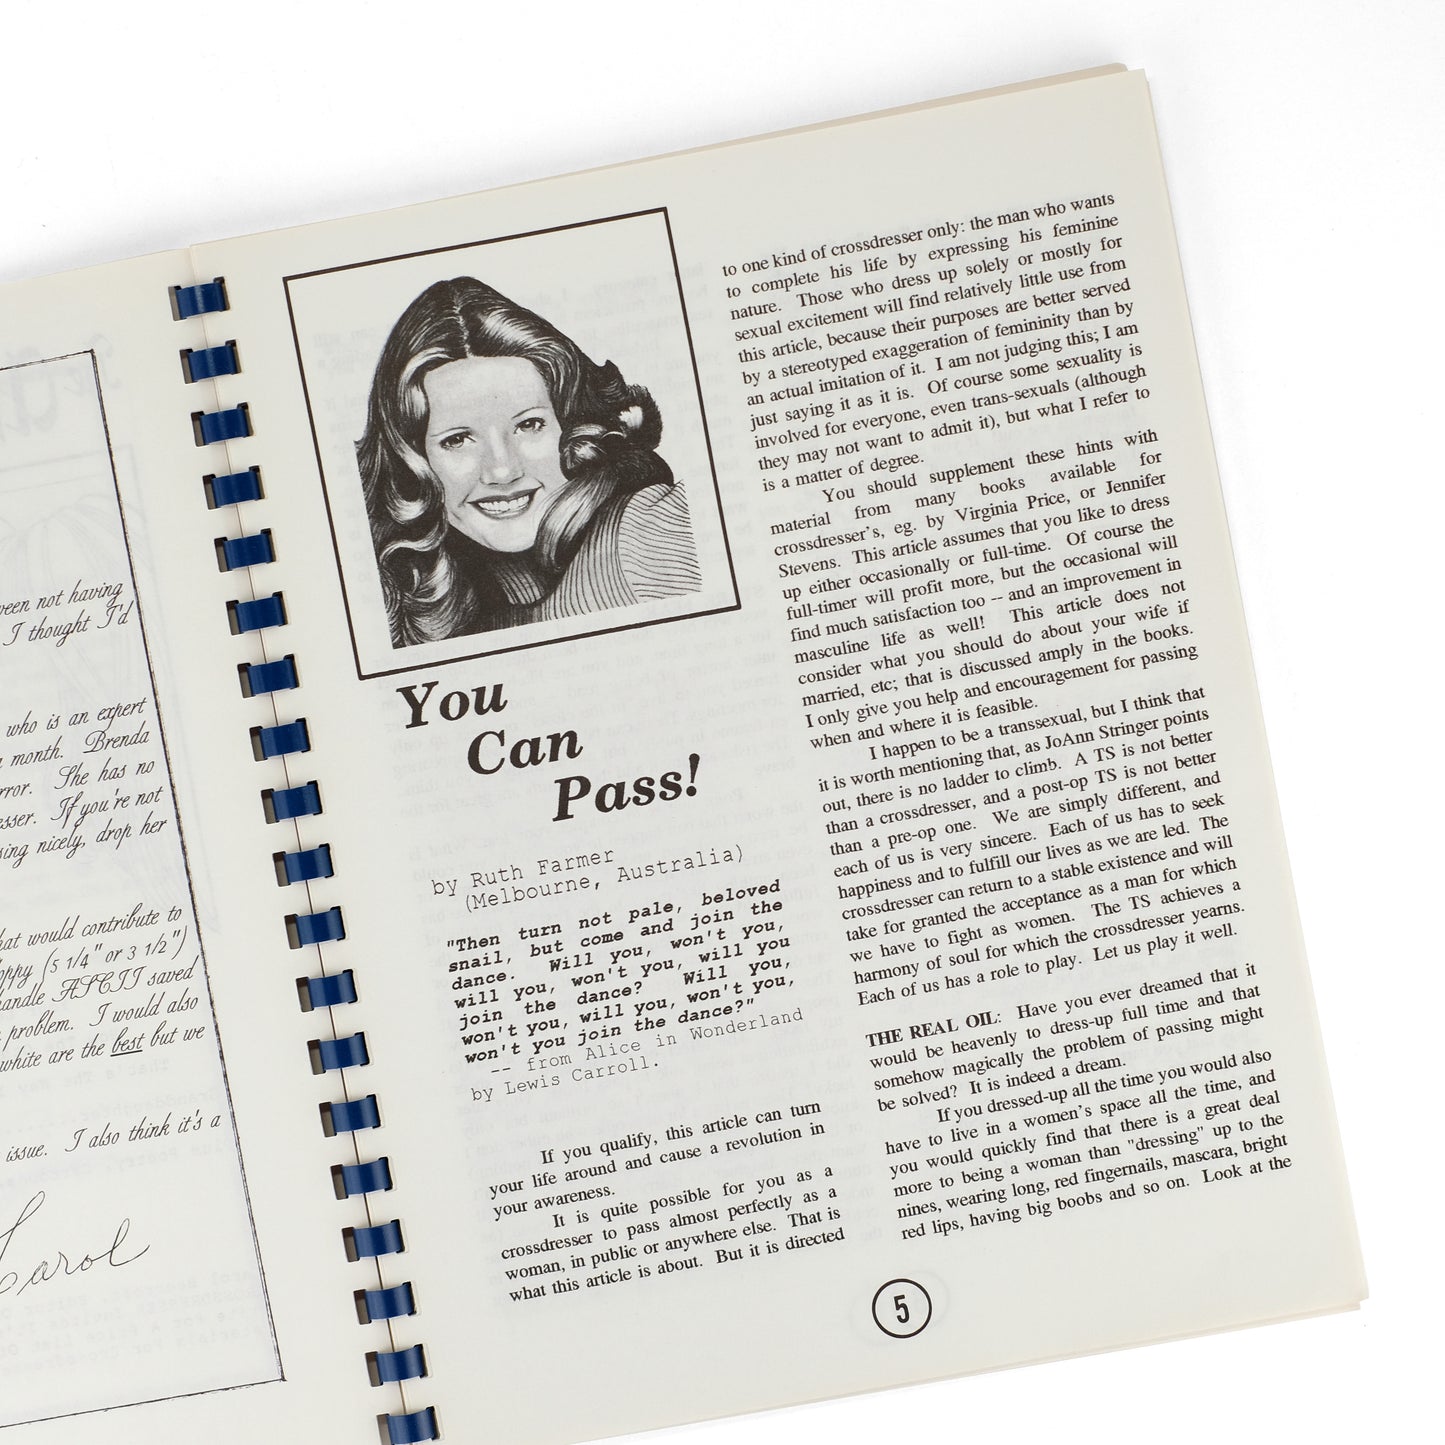 ween not having
I thought I'd
who is an expert
month. Brenda
rror. She has no
esser. If you're not
sing nicely, drop her
hat would contribute to
oppy (5 1/4" or 3 1/2")
handle ASCII saved
problem. I would also
white are the best but we
issue. I also think it's a
Carol
You
Can
Pass!
by Ruth Farmer
(Melbourne, Australia)
"Then turn not pale, beloved
snail, but come and join the
dance. Will you, won't you,
will you, won't you, will you
join the dance? Will you,
won't you, will you, won't you,
won't you join the dance?"
-- from Alice in Wonderland
by Lewis Carroll.
If you qualify, this article can turn
your life around and cause a revolution in
your awareness.
It is quite possible for you as a
crossdresser to pass almost perfectly as a
woman, in public or anywhere else. That is
what this article is about. But it is directed
to one kind of crossdresser only: the man who wants
to complete his life by expressing his feminine
nature. Those who dress up solely or mostly for
sexual excitement will find relatively little use from
this article, because their purposes are better served
by a stereotyped exaggeration of femininity than by
an actual imitation of it. I am not judging this; I am
just saying it as it is. Of course some sexuality is
involved for everyone, even trans-sexuals (although
they may not want to admit it), but what I refer to
is a matter of degree.
You should supplement these hints with
material from many books available for
crossdresser's, eg. by Virginia Price, or Jennifer
Stevens. This article assumes that you like to dress
up either occasionally or full-time. Of course the
full-timer will profit more, but the occasional will
find much satisfaction too -- and an improvement in
masculine life as well! This article does not
consider what you should do about your wife if
married, etc; that is discussed amply in the books.
I only give you help and encouragement for passing
when and where it is feasible.
I happen to be a transsexual, but I think that
it is worth mentioning that, as JoAnn Stringer points
out, there is no ladder to climb. A TS is not better
than a crossdresser, and a post-op TS is not better
than a pre-op one. We are simply different, and
each of us is very sincere. Each of us has to seek
happiness and to fulfill our lives as we are led. The
crossdresser can return to a stable existence and will
take for granted the acceptance as a man for which
we have to fight as women. The TS achieves a
harmony of soul for which the crossdresser yearns.
Each of us has a role to play. Let us play it well.
THE REAL OIL: Have you ever dreamed that it
would be heavenly to dress-up full time and that
somehow magically the problem of passing might
be solved? It is indeed a dream.
If you dressed-up all the time you would also
have to live in a women's space all the time, and
you would quickly find that there is a great deal
more to being a woman than "dressing" up to the
nines, wearing long, red fingernails, mascara, bright
red lips, having big boobs and so on. Look at the
5